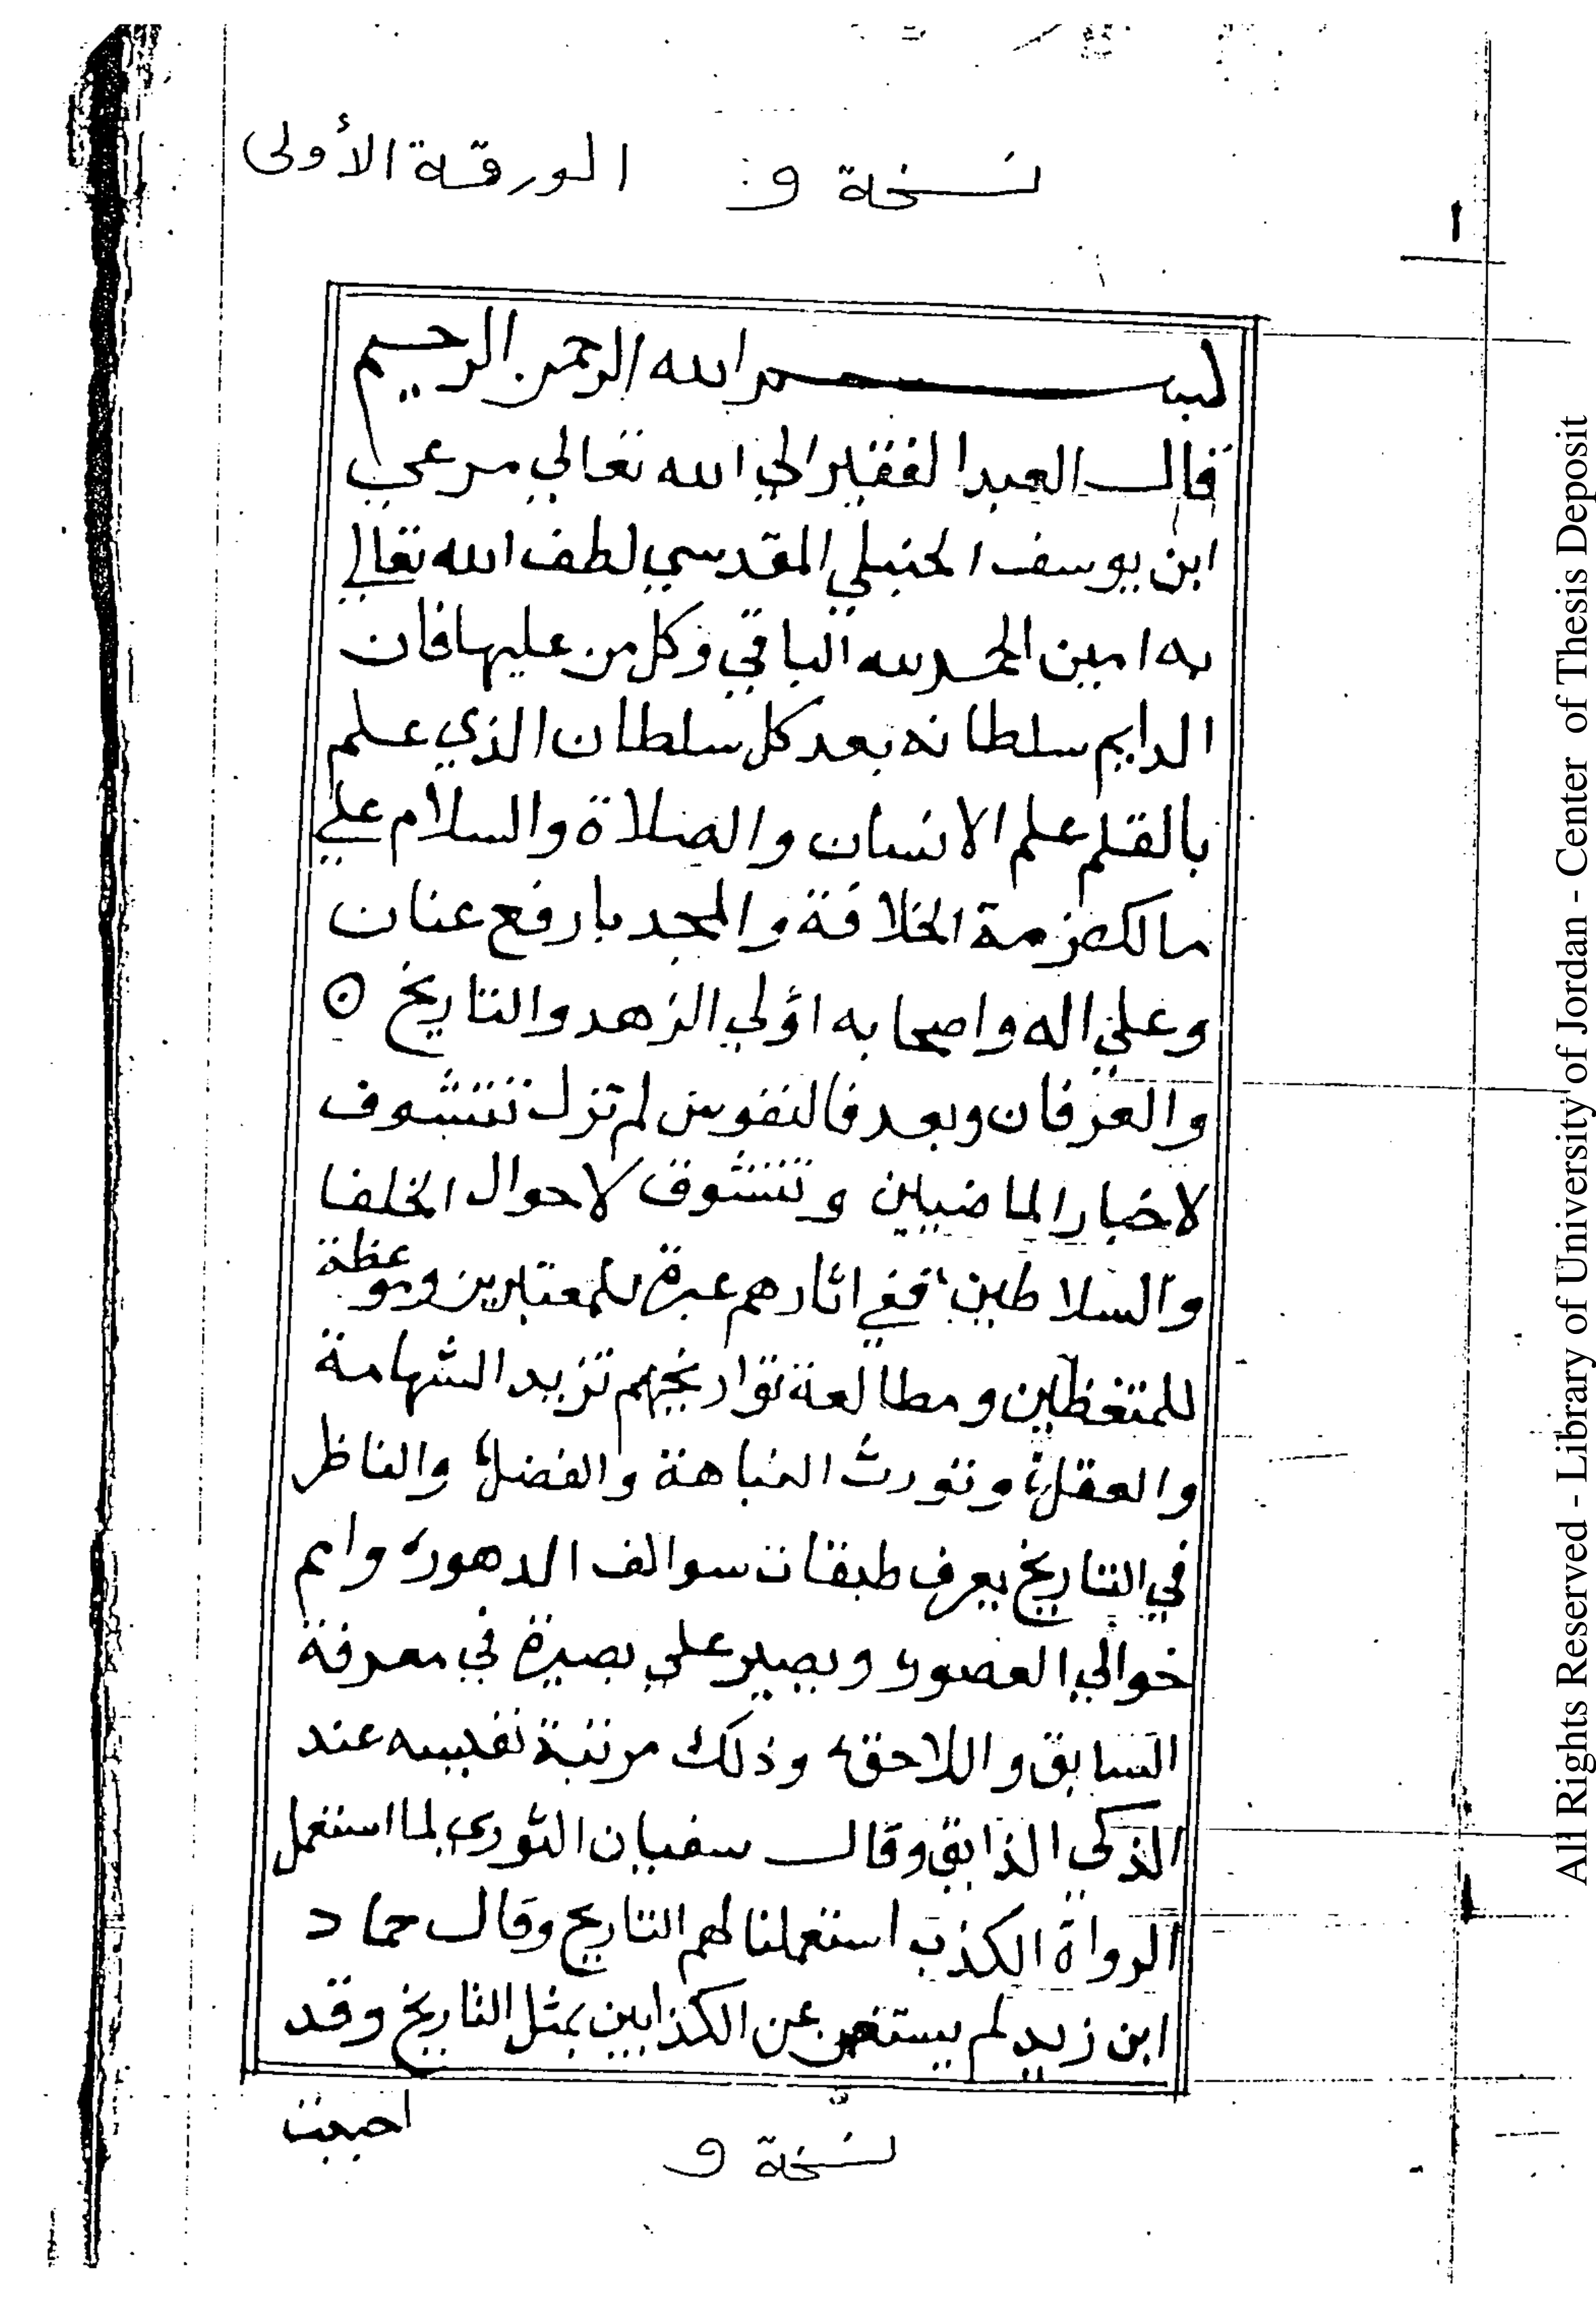 نسخة و: الورقة الأولى
١
بسم الله الرحمن الرحيم
قال العبد الفقير الي الله تعالي مرعي
ابن يوسف الحنبلي المقدسي لطف الله تعالي
به امين الحمد لله الباقي وكل من عليها فان
الدايم سلطانه بعد كل سلطان الذي علم
بالقلم علم الانسان والصلاة والسلام علي
مالك ازمة الخلافة والمجد بارفع عنان
وعلي اله واصحابه اولي الزهد والتاريخ ⊙
والعرفان وبعد فالنفوس لم تزل تتشوف
لاخبار الماضيين وتتشوق لاحوال الخلفا
والسلاطين، ففي اثارهم عبرة للمعتبرين وموعظة
للمتغظين ومطالعة تواريخهم تزيد الشهامة
والعقل، وتورث النباهة والفضل، والناظر
في التاريخ يعرف طبقات سوالف الدهور، وامم
خوالي العصور ويصير علي بصيرة في معرفة
السابق واللاحق، وذلك مرتبة نفيسه عند
الذكي الذايق وقال سفيان الثوري لما استعمل
الرواة الكذب استعملنا لهم التاريخ وقال حماد
ابن زيد لم يستعن عن الكذابين بمثل التاريخ وقد
اجمعت
نسخة و
All Rights Reserved - Library of University of Jordan - Center of Thesis Deposit